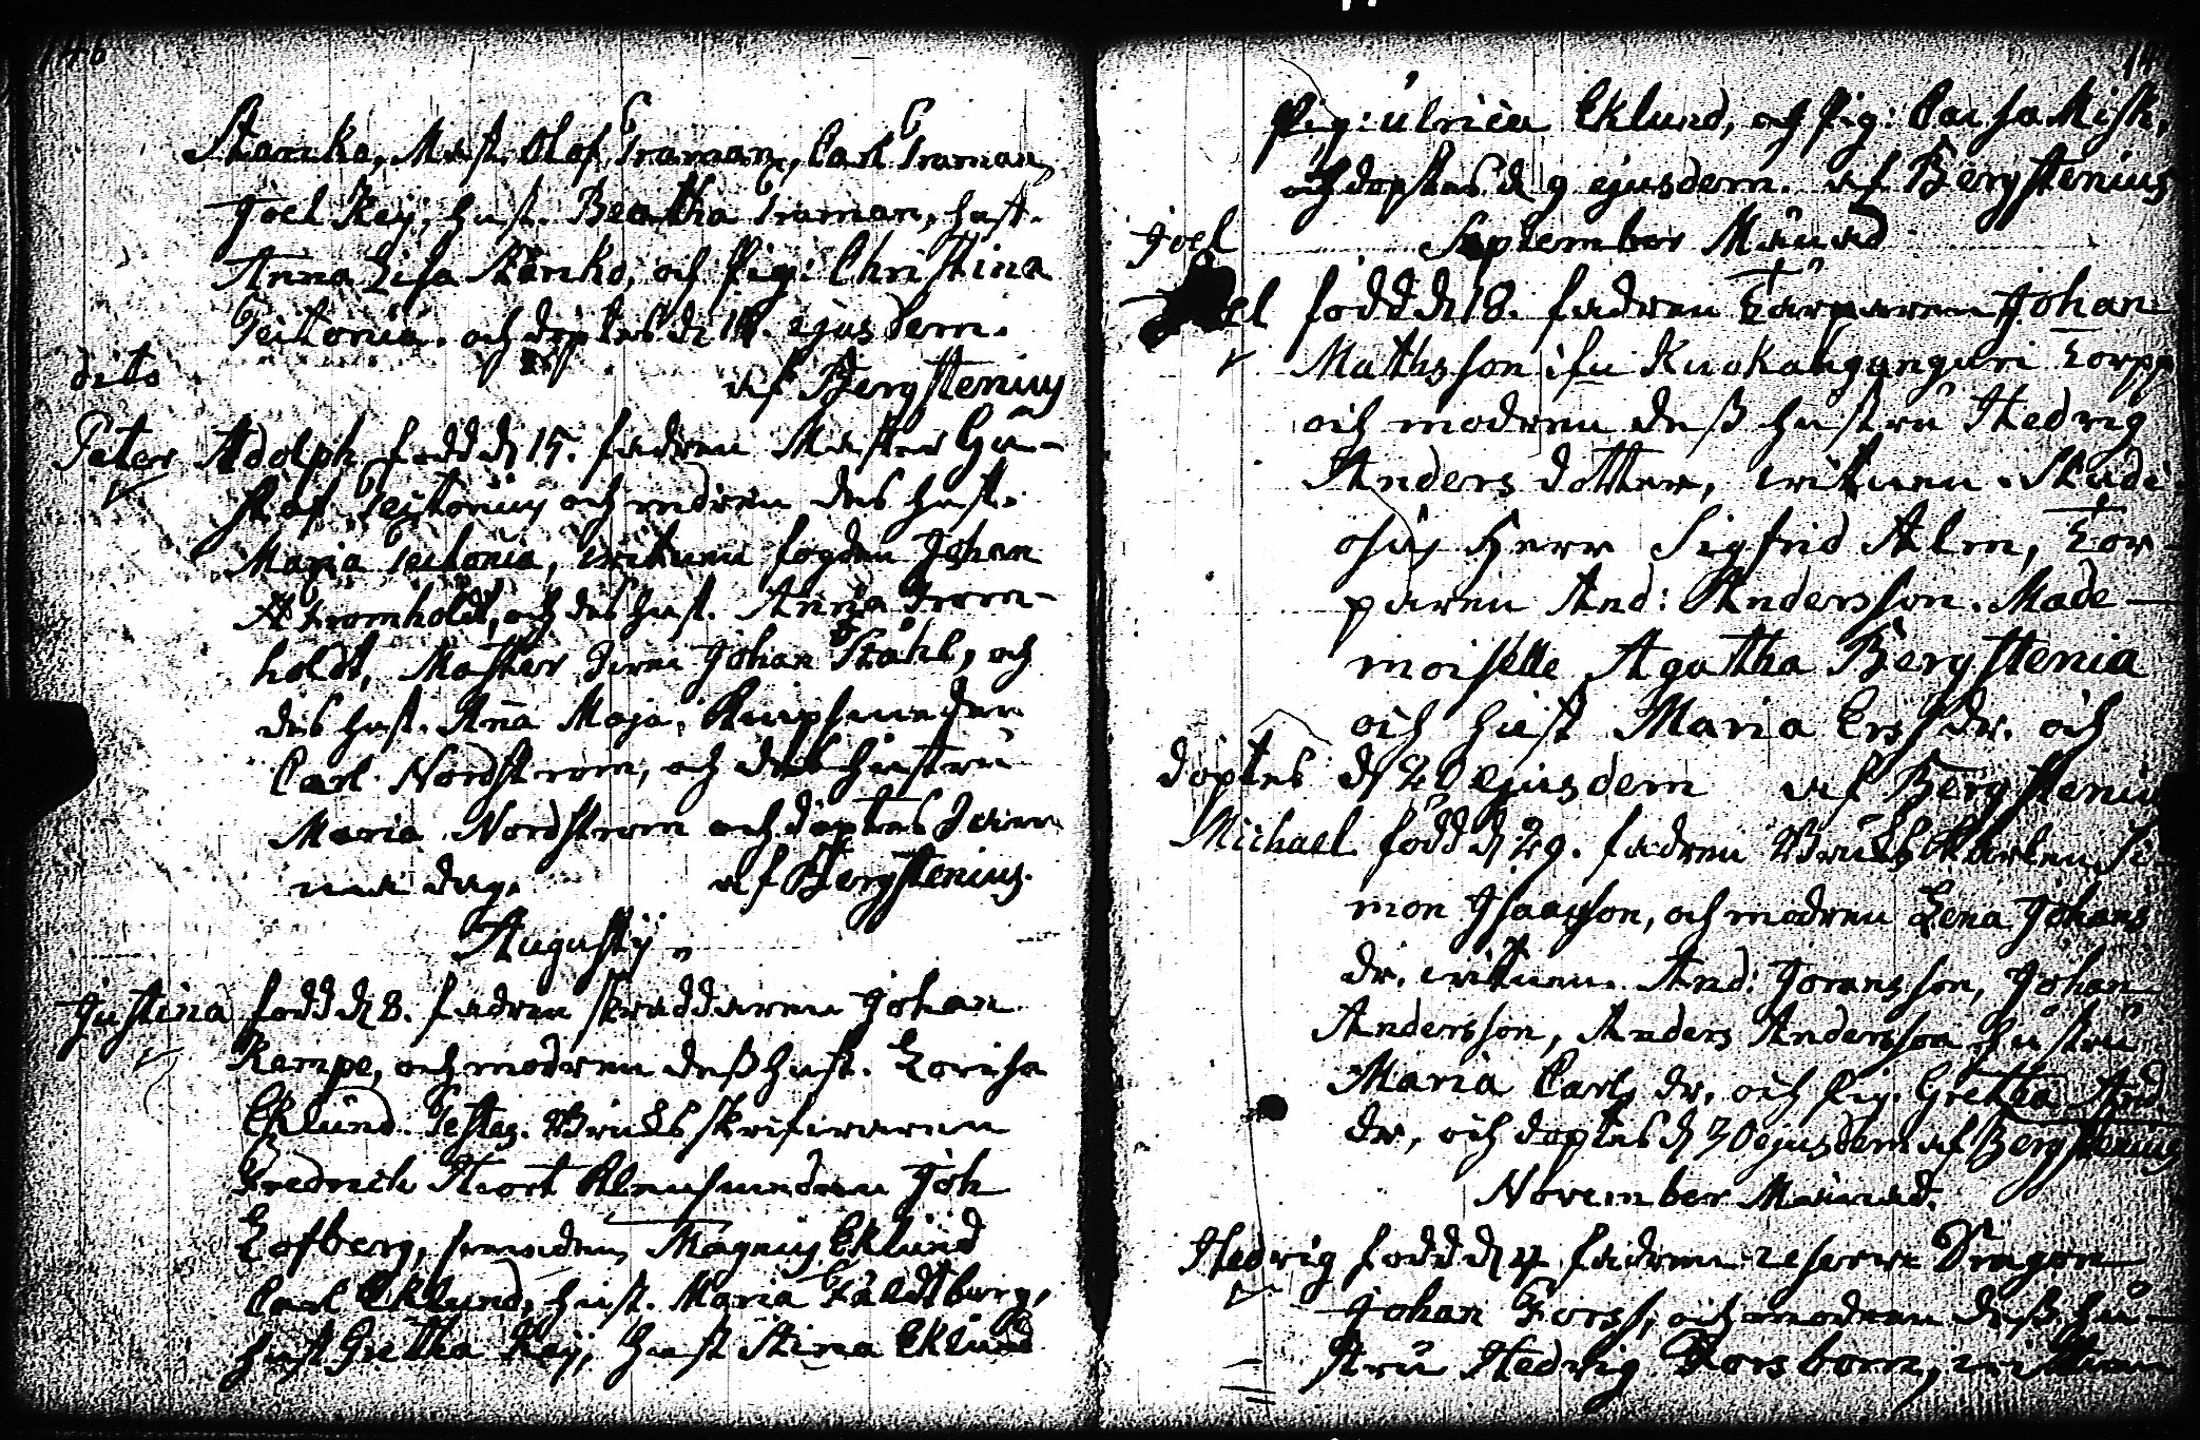 146
Starcka, Mäst. Olof Traman, Carl Traman,
Joel Reij, hust. Beatha Traman, hust.
Anna Lisa Stenko, och Pig: Christina
Teitonia. och döptes d. 18. ejusdem.
dito af Bergstenius
Peter Adolph född d. 15. fadren Mäster Gu-
staf Teitonius och modren des hust.
Maria Teitonia, witnen fogden Johan
Stromholdt, och des hust. Anna Strom-
holdt, Mäster Johan Ståhl, och
des hust. Aña Maja, Knipsmeden
Carl Nordstrom, och des hustru
Maria Nordstrom och döptes samma
dag. af Bergstenius.
Augustÿ
Justina född d. 8. fadren skräddaren Johan
Kempe, och modren deß hust. Lovisa
Eklund. Testes. Bruks skrifwaren
Fredrich Hiort Klensmeden Joh
Lofberg, smeden Magnus Eklund
Carl Eklund, hust. Maria Fäldtberg,
hust Gretha Reij, hust Stina Eklund
Pig: Ulrica Eklund, och Pig: Caisa Misk,
och döptes d. 9 ejusdem. af Bergstenius
Joel September Månad
Joel född d. 18. fadren Torparen Johan
Mathsson ifrå Kuokanganguri Torpp
och modren deß hustru Hedvig
Anders dotter, witnen. Studi
osus Herr Sigfrid Alm, Tor-
paren And: Andersson. Made-
moiselle Agatha Bergstenia
och hust Maria Ersdr. och
döptes d. 20 ejusdem af Bergstenius
Michael född d. 29. fadren Bruks Karlen Si-
mon Isaacsson, och modren Lena Johans
dr. witnen. And: Joransson, Johan
Andersson, Anders Andersson hustru
Maria Carls dr. och Pig. Gretha And.
dr, och döptes d. 30 ejusdem af Bergstenius
November Månad.
Hedvig född d. 4 fadren reserve Dragon
Johan Forss, och modren deß hu-
stru Hedvig Forsbom, witnen